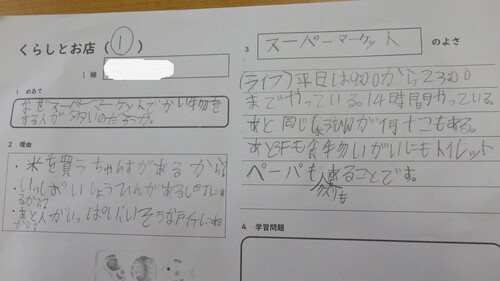 くらしとお店(1)
1組
1 めあて
なぜスーパーマーケットでかい物を
する人が多いのだろうか。
2 理由
・米を買うちゃんすがあるから
・いっぱいしょうひんがあるし
るから?
・あと人がいっぱい
から?
3 スーパーマーケット のよさ
(ライフ)平日は9:00から23:00
までやっている。14時間やっている。
あと同じしょうひんが何十こもある。
あと3Fも食物いがいにもトイレット
ペーパーも売ることです。
4 学習問題